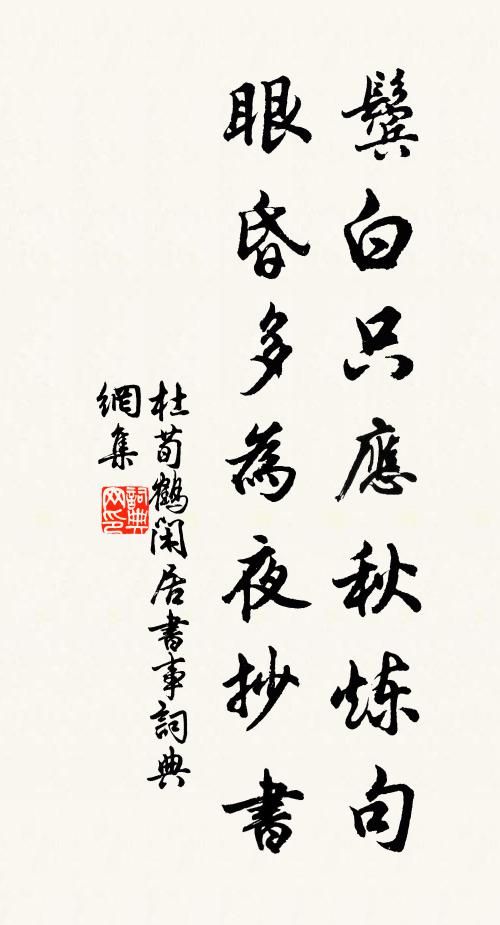 鬓白只應秋炼句
眼昏多為夜抄書
杜荀鶴閑居書事詞典
網集
詞典
网印